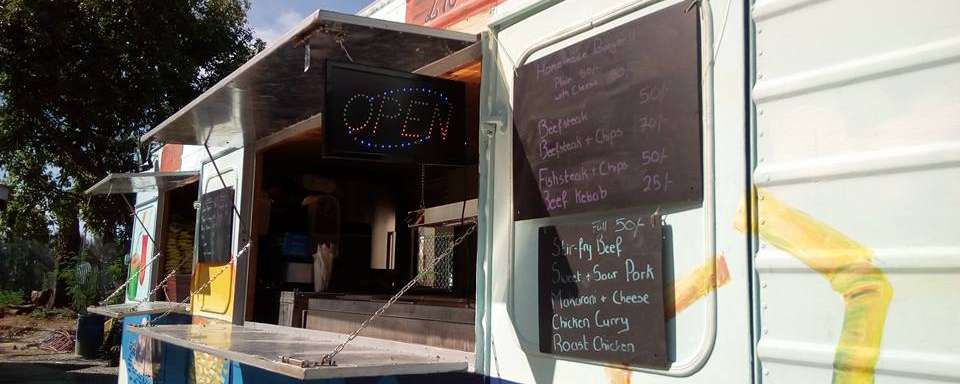 OPEN
Homemade Burger!!
Plain 50/-
with Cheese
50/-
Beefsteak
Beefsteak + Chips 70/-
Fishsteak + Chips 50/-
Beef Kebab 25/-
Full 50/-
Stir-fry Beef
Sweet + Sour Pork
Macaroni + Cheese
Chicken Curry
Roast Chicken